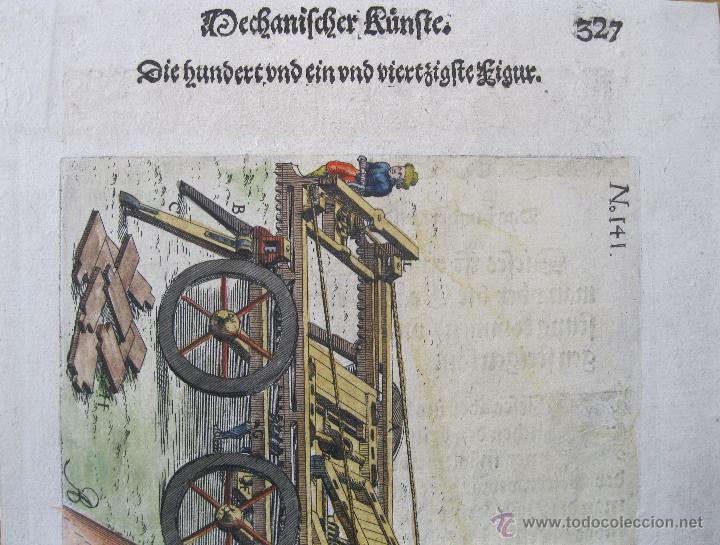 Mechanischer Künste. 327
Die hundert vnd ein vnd viertzigste Figur.
No. 141.
B
C
E
L
G
F
H
© www.todocoleccion.net